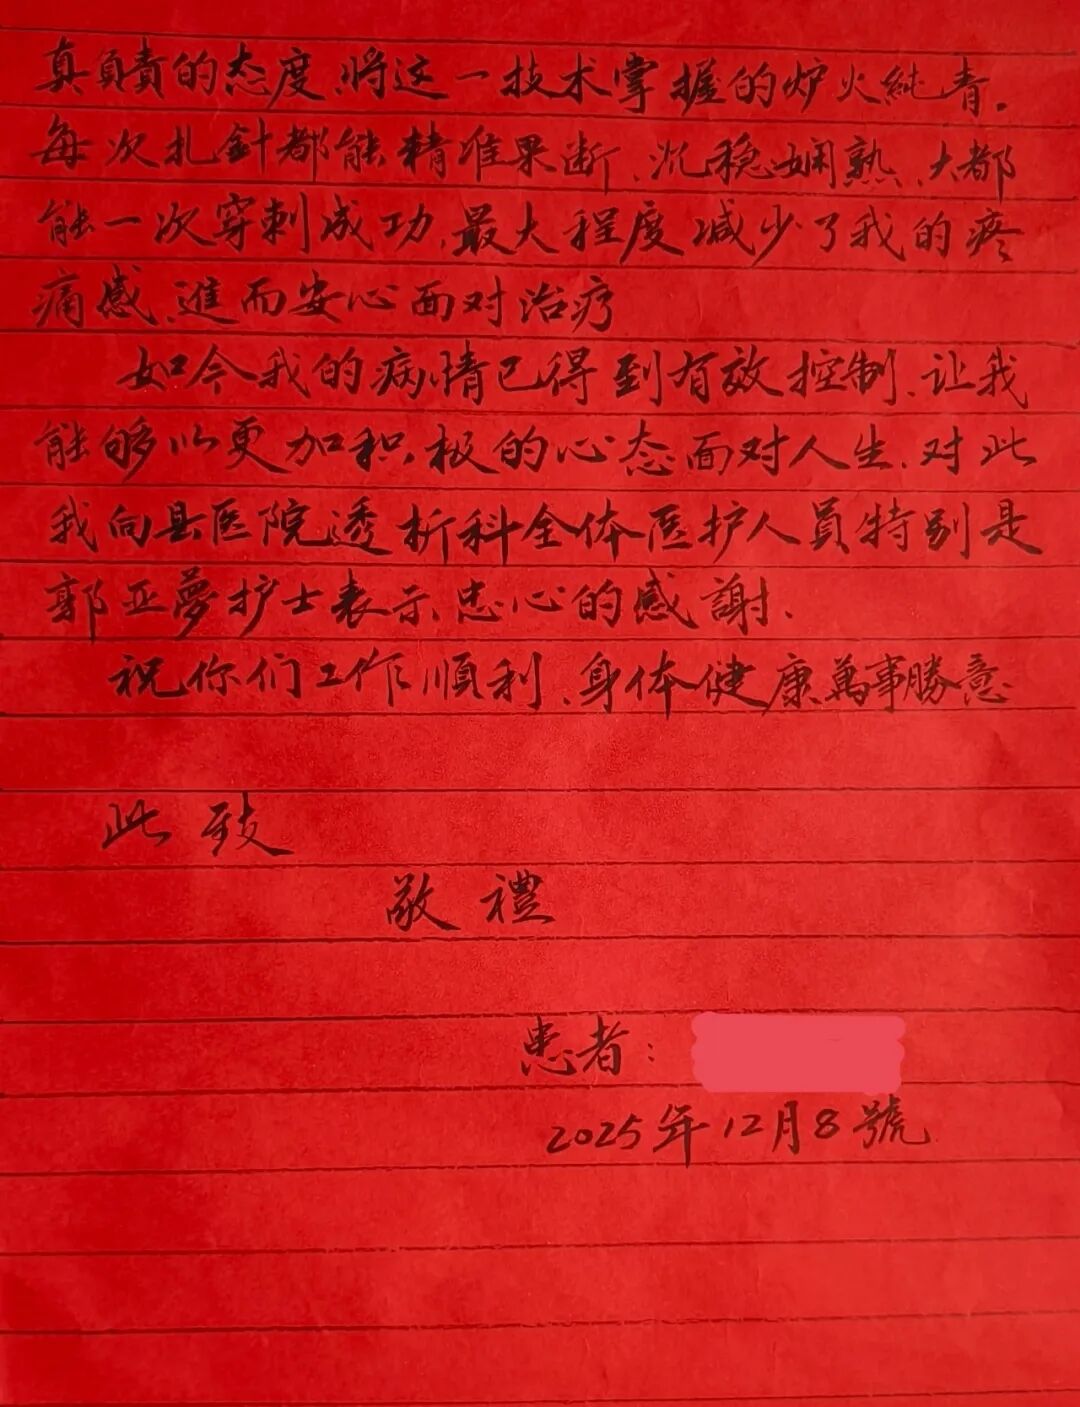 真負責的态度、将这一技术掌握的炉火純青。
每次扎針都能精准果断、沉稳娴熟、大都
能一次穿刺成功、最大程度减少了我的疼
痛感、進而安心面对治疗
如今我的病情已得到有效控制、让我
能够以更加积极的心态面对人生、对此
我向县医院透析科全体医护人員特别是
郭亚夢护士表示忠心的感謝、
祝你们工作順利、身体健康萬事勝意
此致
敬禮
患者:
2025年12月8號